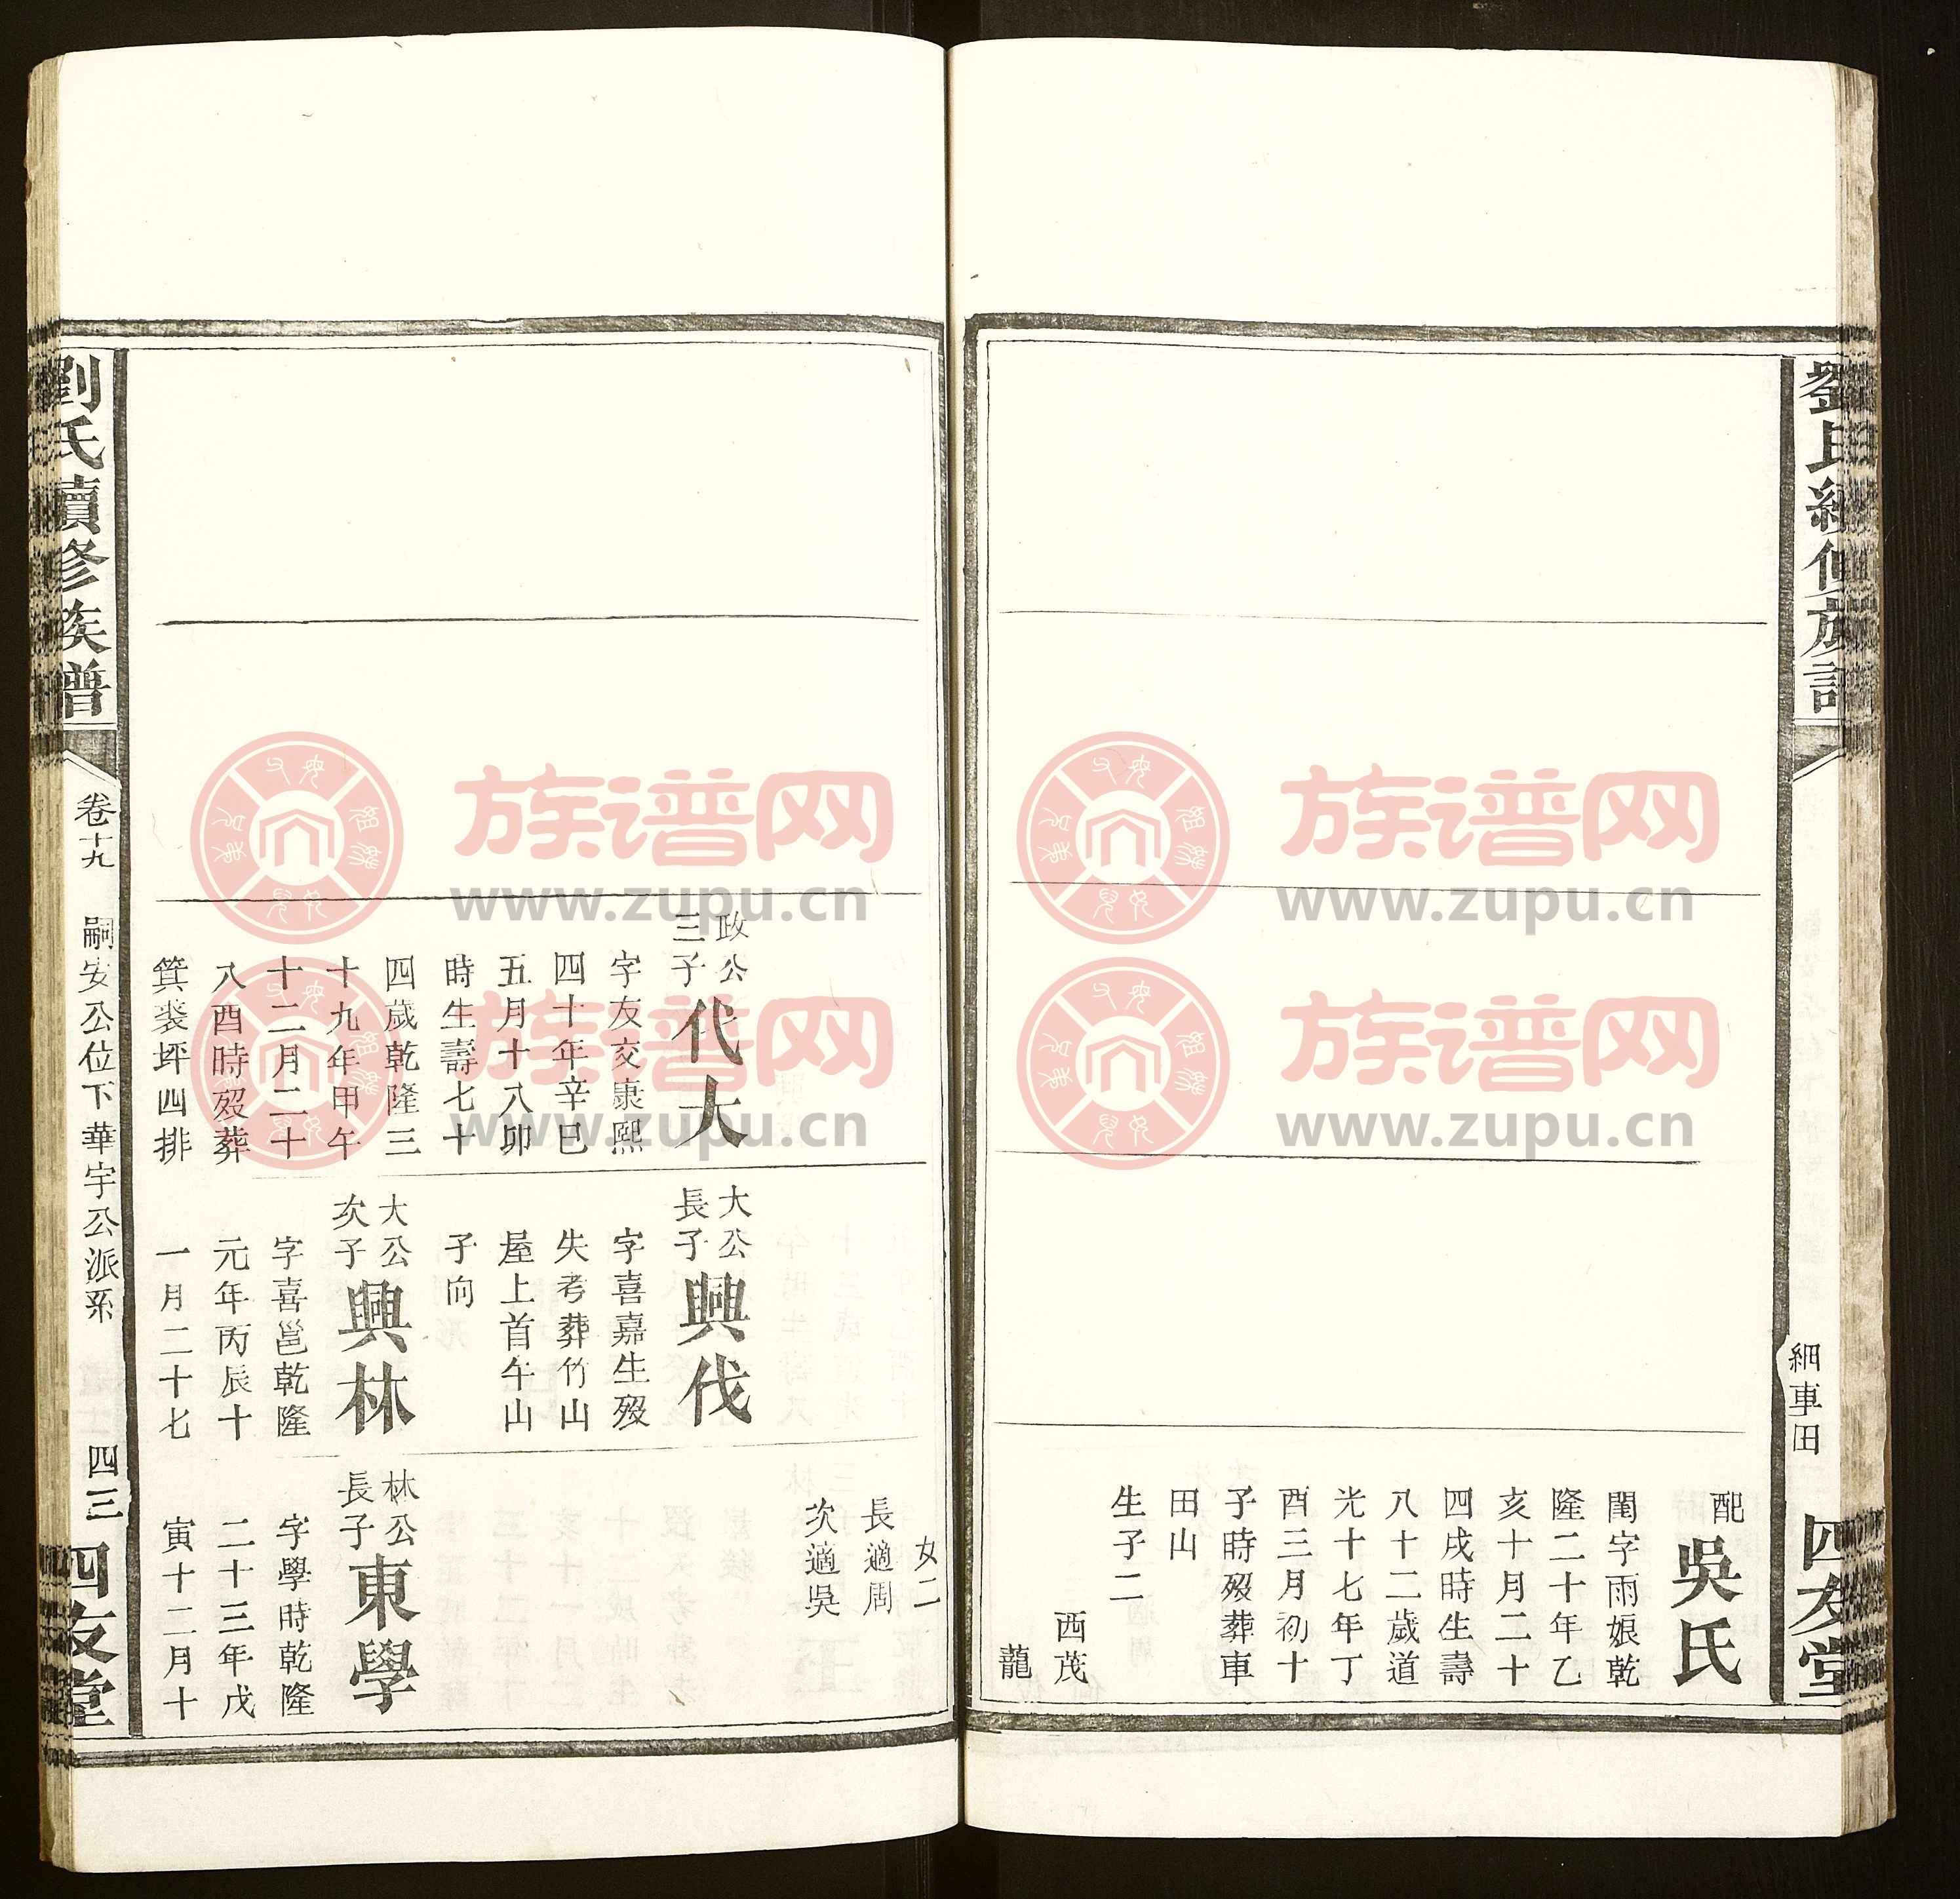 劉氏續修族譜
細車田
四友堂
配吳氏
閨字雨娘乾
隆二十年乙
亥十月二十
四戌時生壽
八十二歲道
光十七年丁
酉三月初十
子時歿葬車
田山
生子二
西茂
龍
女二
長適周
次適吳
政公
三子
代大
字友交康熙
四十年辛巳
五月十八卯
時生壽七十
四歲乾隆三
十九年甲午
十二月二十
八酉時歿葬
箕裘坪四排
大公
長子
興伐
字喜嘉生歿
失考葬竹山
屋上首午山
子向
大公
次子
興林
字喜邕乾隆
元年丙辰十
一月二十七
林公
長子
東學
字學時乾隆
二十三年戊
寅十二月十
劉氏續修族譜
卷十九
嗣安公位下華宇公派系
四三
四友堂
族谱网
www.zupu.cn
族谱网
www.zupu.cn
族谱网
www.zupu.cn
族谱网
www.zupu.cn